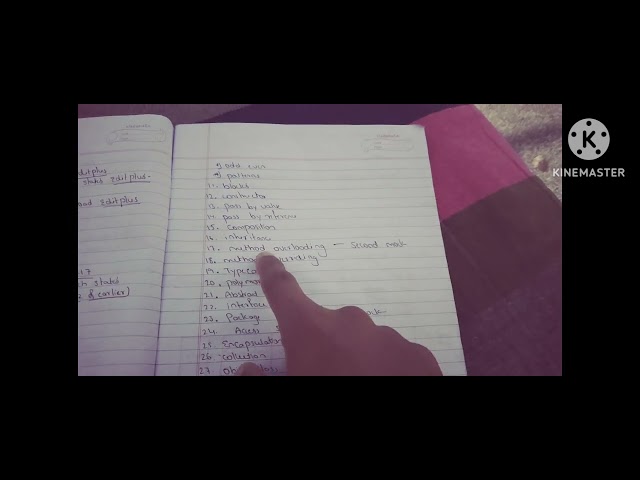 Editplus
start Editplus -
load Editplus
7
ch stated
& earlier)
9) odd even
9) patterns
11. blocks
12. constructor
13. pass by value
14. pass by reference
15. Composition
16. inheritance
17. method overloading - Second mock
18. method
19. Type
20. polymor
21. Abstract
22. interface
23. Package
24. Acess
25. Encapsulation
26. collection
27.
K
KINEMASTER